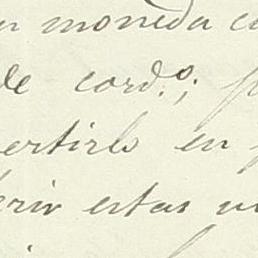 moneda
de cord.º;
ertirlo en
erir estas